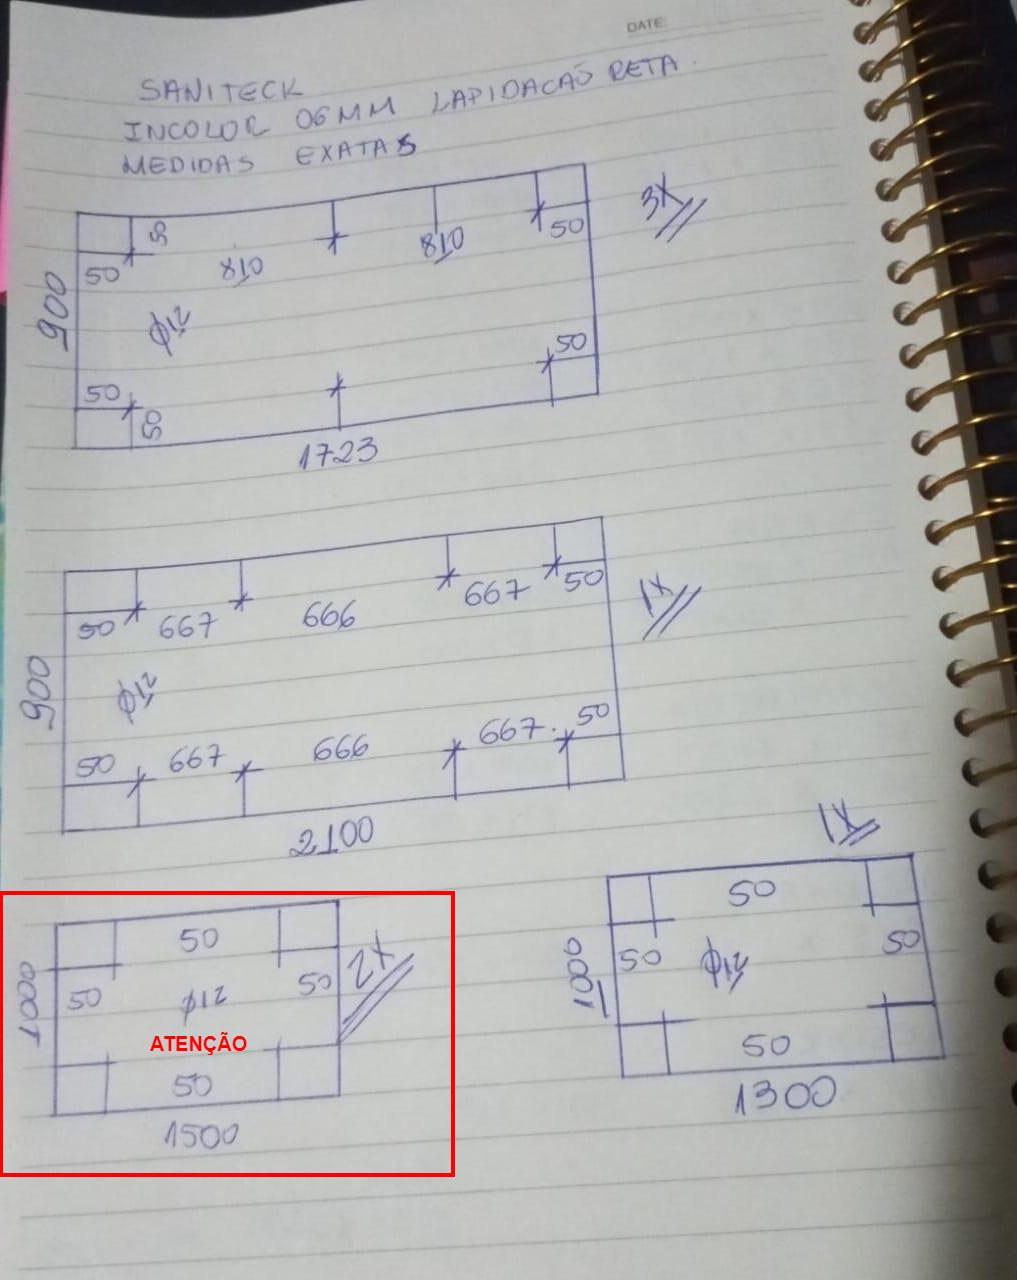 DATE:
SANITECK
INCOLOR 06MM LAPIDACAÕ RETA.
MEDIDAS EXATAS
3X
50
50
810
810
50
900
φ12
50
50
50
1723
1X
50
667
666
667
50
900
φ12
50
667
666
667.
50
2100
1X
50
1000
50
φ12
50
50
1300
2X
50
1000
50
φ12
50
ATENÇÃO
50
1500